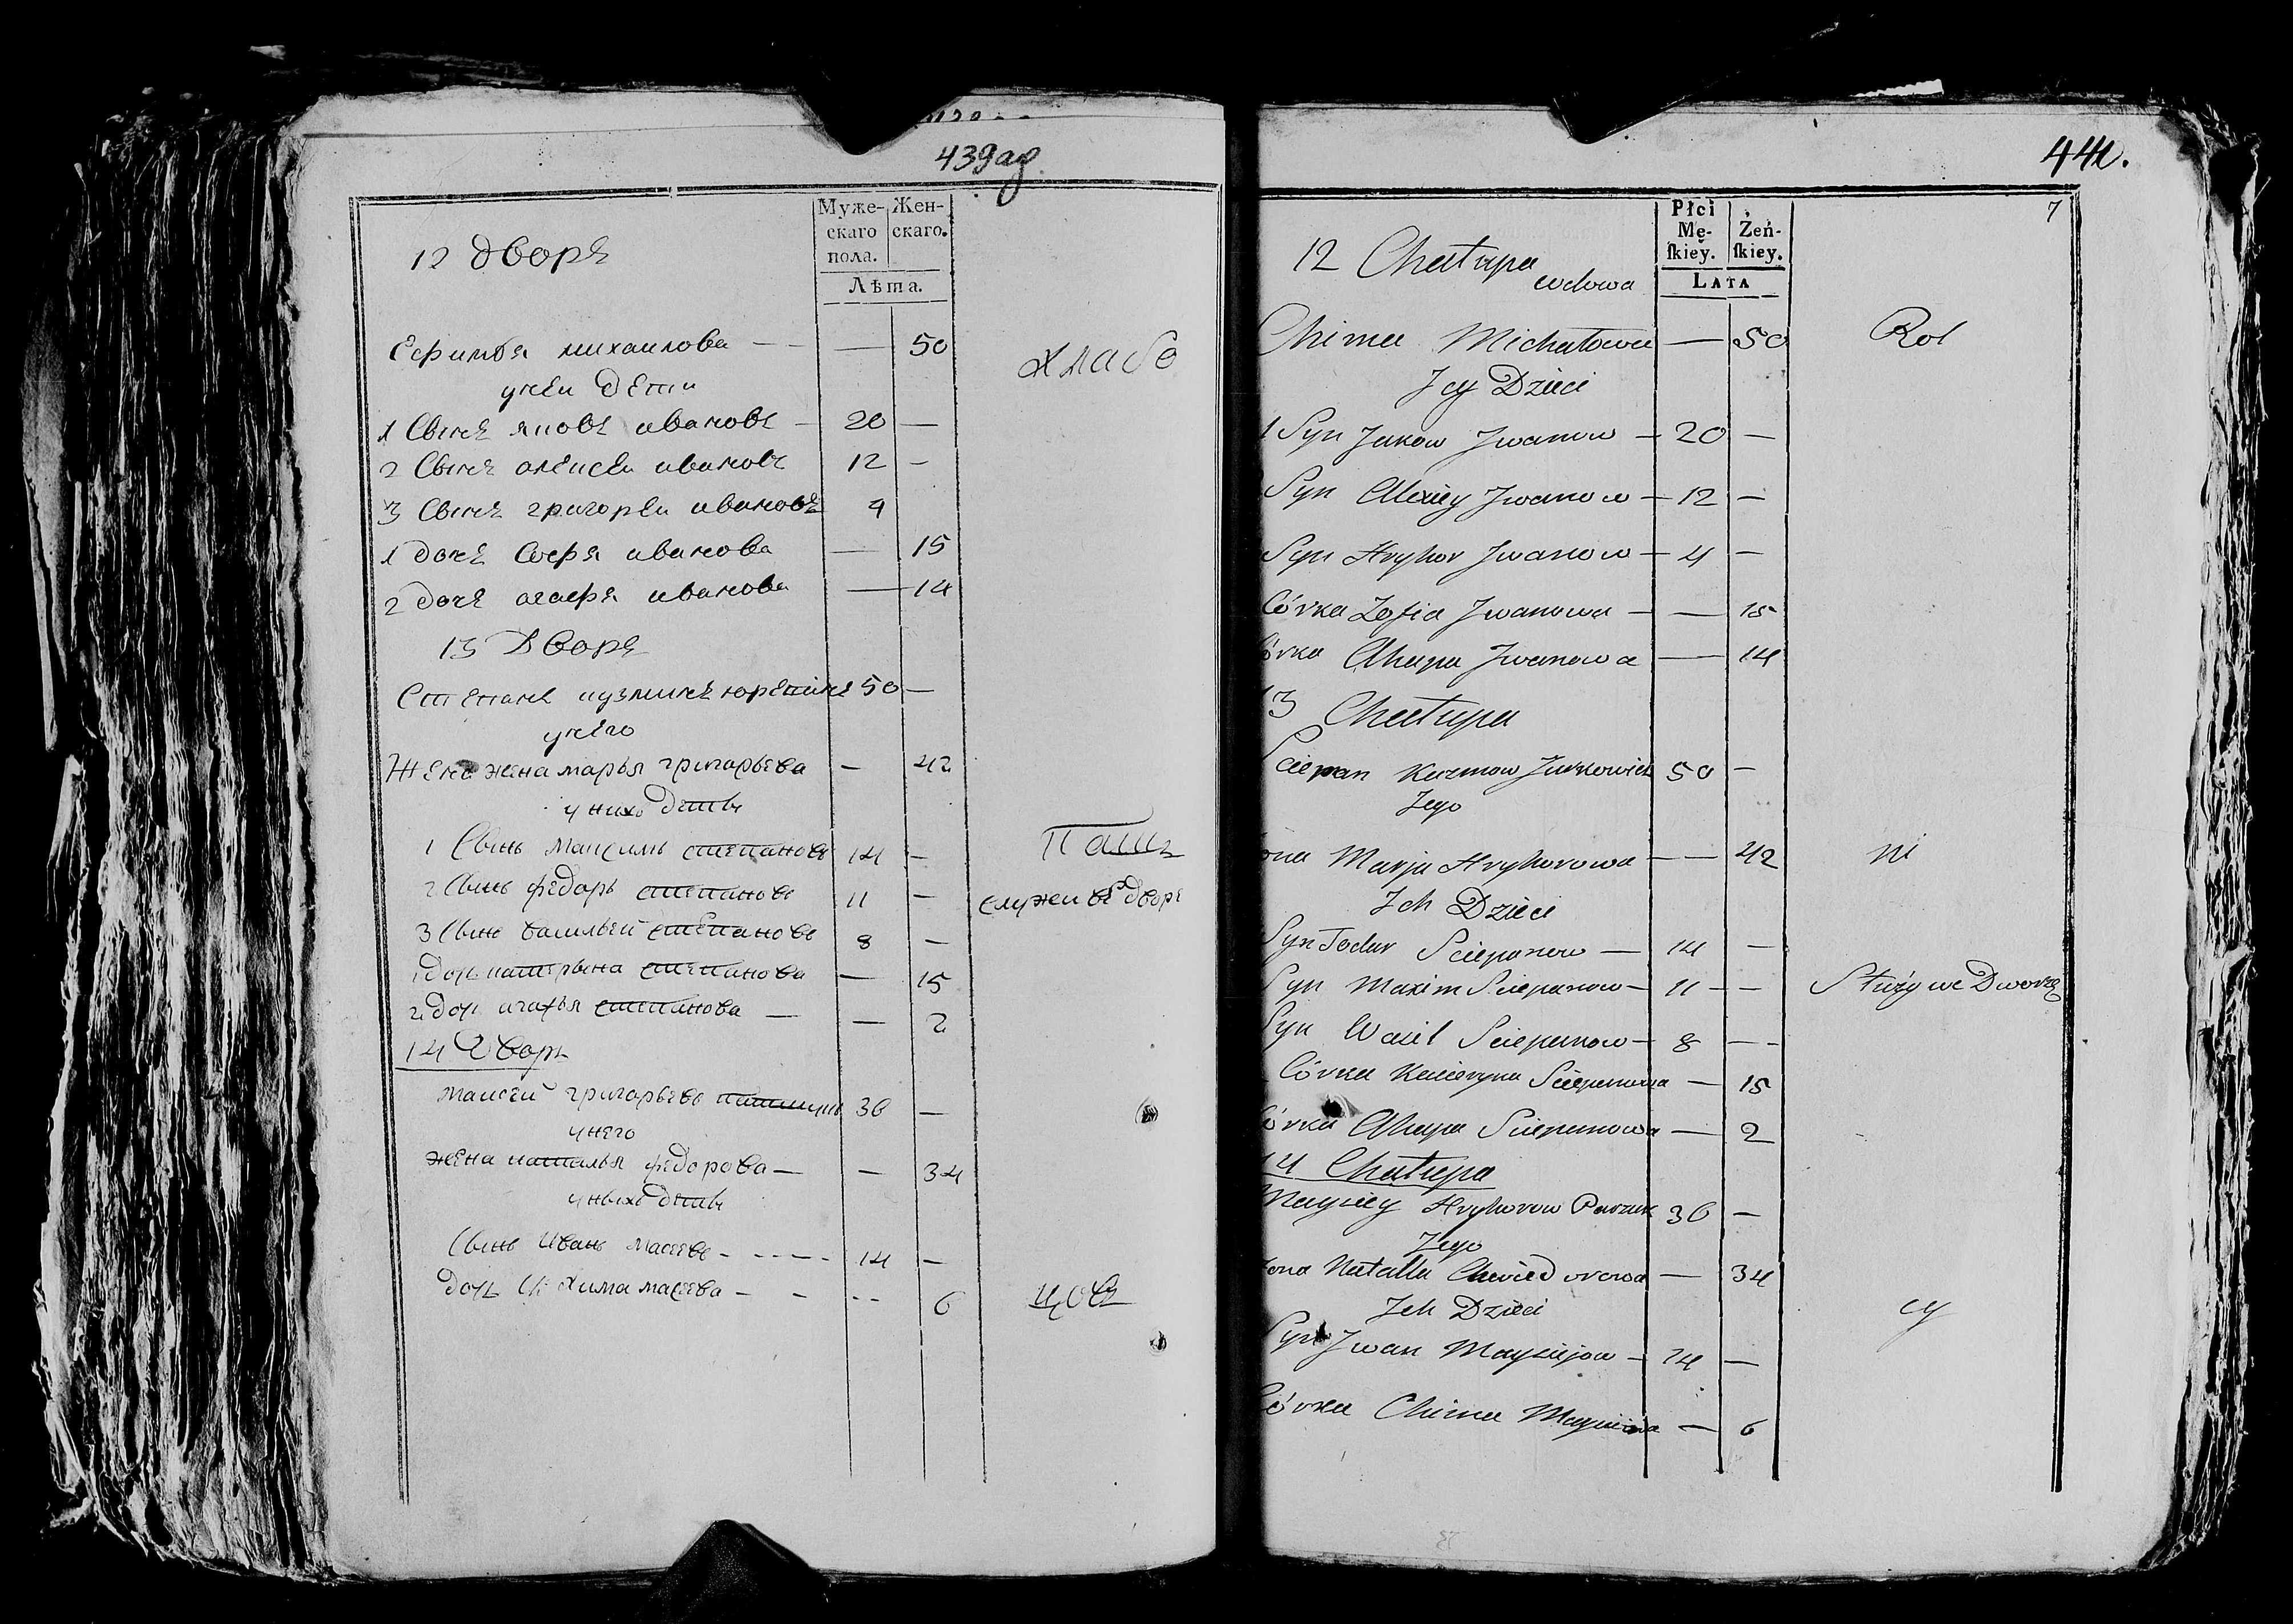 439ад
Муже- Жен-
скаго скаго.
пола.
Лѣта.
12 дворъ
Ефимъя михаилова — — 50
унеи дети
хлебо
1 Сынъ яковъ ивановъ — 20 —
2 Сынъ алексеи ивановъ 12 —
3 Сынъ григореи ивановъ 4
1 дочъ Софя иванова — 15
2 дочъ агафя иванова — 14
13 Дворъ
Степанъ кузминъ юркевичъ 50 —
унего
жена марья григарьева — 42
у нихъ дети
1 Сынъ максимъ степановъ 14 —
Пашъ
2 Сынъ федоръ степановъ 11 —
служи въ дворе
3 Сынъ василей степановъ 8 —
1 дочь катерына степанова — 15
2 дочь агафья степанова — — 2
14 Дворъ
маисей григарьевъ 36 —
унего
жена наталья федорова — — 34
унихъ дети
Сынъ иванъ масеевъ - - - - 14 —
дочь химa масеева - - - - 6
цовъ
440.
7
Płci
Mę- Żeń-
ſkiey. ſkiey.
LATA
12 Chałupa
wdowa
Chima Michałowa — 50
Rol
Jey Dzieci
1 Syn Jakow Iwanow — 20 —
Syn Alexiey Iwanow — 12 —
Syn Hryhor Iwanow — 4 —
Córka Zofia Iwanowa — — 15
Córka Ahapa Iwanowa — 14
13 Chałupa
Sciepan Kuzmow Jurkowicz 50 —
Jego
żona Marja Hryhorowa — — 42
ni
Ich Dzieci
Syn Todar Sciepanow — 14 —
Syn Maxim Sciepanow — 11 - —
Służy we Dworze
Syn Wasil Sciepanow — 8 - -
Córka Kacieryna Sciepanowa — 15
Córka Ahapa Sciepanowa — 2
14 Chałupa
Maysiey Hryhorow Parzuk 36 —
Jego
żona Natalla Chwiedorowa — 34
Ich Dzieci
cy
Syn Iwan Maysiejow — 14 —
Córka Chima — 6